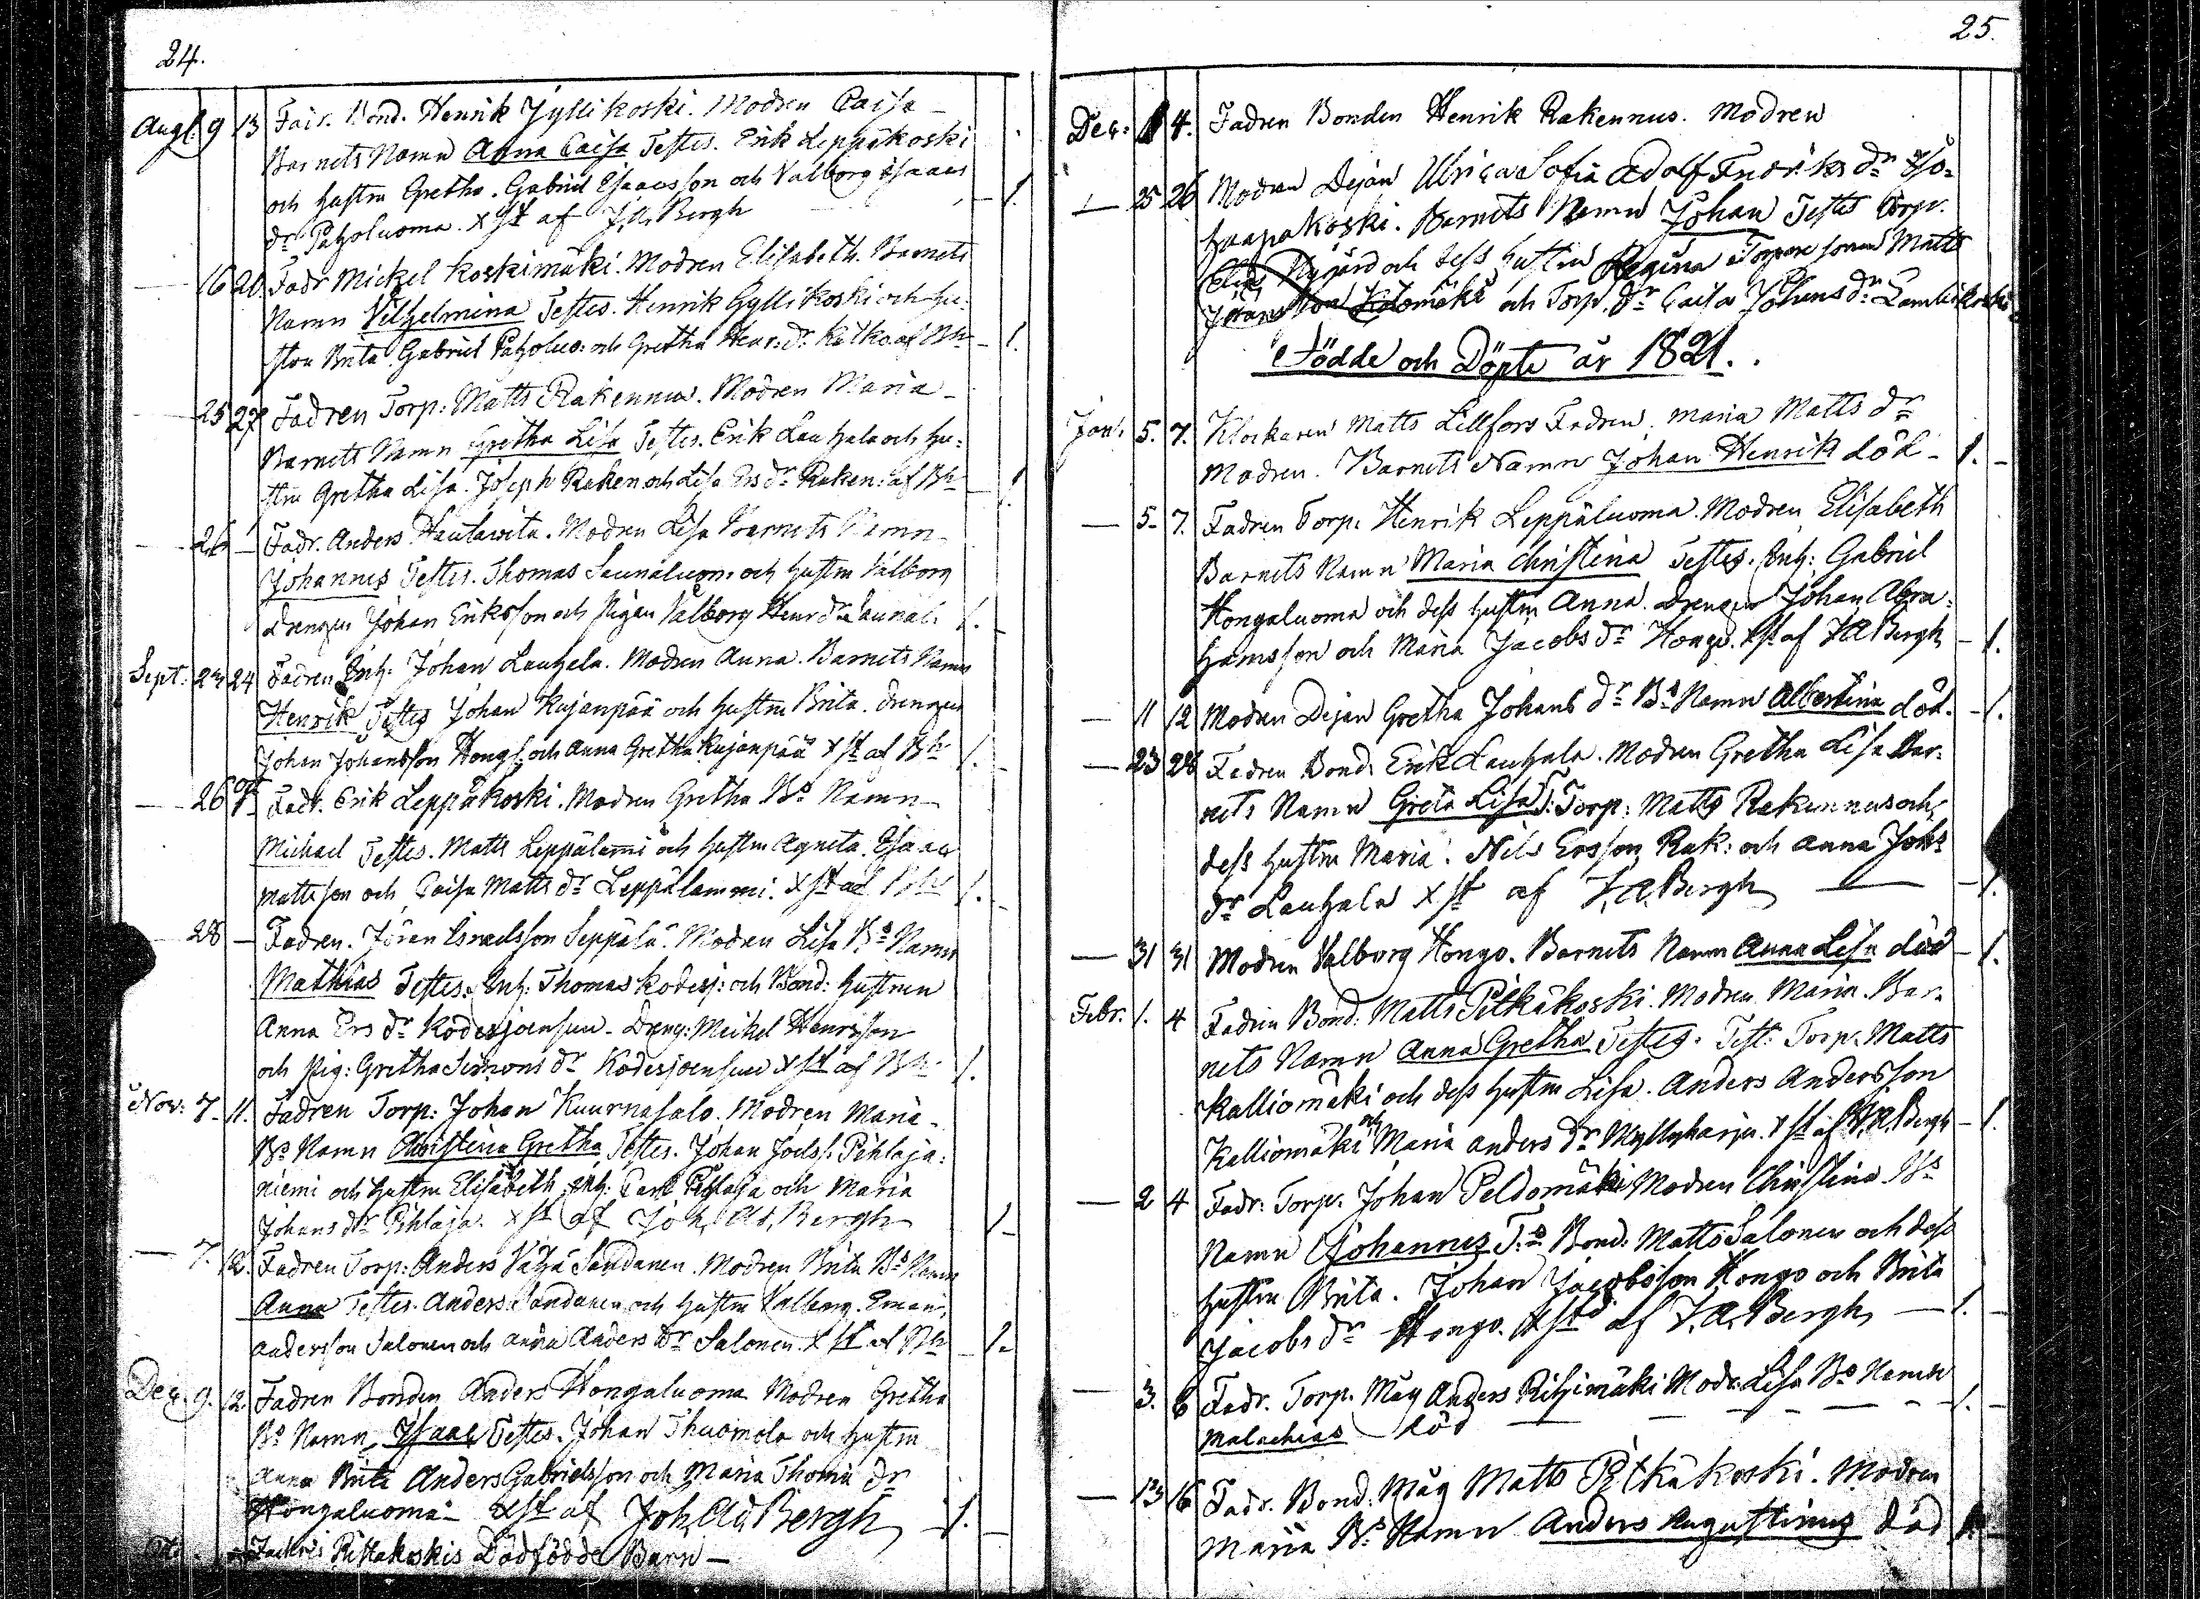 24.
Aug. 9 13 Fadr. Bond. Henrik Jyllikoski. Modren Caisa
Barnets Namn Anna Caisa Testes. Erik Leppäkoski
och hustru Gretha. Gabriel Isaacsson och Valborg Isaacs
dr. Pajoluoma. xst af J. A. Bergh
16 20 Fadr Mickel Koskimäki. Modren Elisabeth. Barnets
Namn Vilhelmina Testes. Henrik Gyllikoski och hu-
stru Brita. Gabriel och Gretha Henr. dr. af Bh
25 27 Fadren Torp: Matts Rakennus. Modren Maria
Barnets Namn Gretha Lisa Testes. Erik Lauhala och hu-
stru Gretha Lisa. Joseph Raken och Lisa Ers dr Raken: af Bh
26 — Fadr. Anders Hautaviita. Modren Lisa Barnets Namn
Johannes Testes. Thomas Saunaluom. och hustru Valborg
Drengen Johan Eriksson och Pigan Valborg Henr dr Saunal. 1.
Sept: 23 24 Fadren Inh: Johan Lauhala. Modren Anna. Barnets Namn
Henrik Testes Johan Kujanpää och hustru Brita. Drengen
Johan Johansson Hong. och Anna Gretha Kujanpää xst af Bh 1.
26 Fadr. Erik Leppäkoski. Modren Gretha Bs Namn
Michael Testes. Matts Leppälammi och hustru Agneta. Isaac
Mattsson och Caisa Matts dr Leppälammi. xst af Bh 1.
28 — Fadren. Jöran Israelsson Seppälä. Modren Lisa Bs Namn
Mathias Testes. Inh: Thomas Kodesj: och Bond: hustrun
Anna Ers dr Kodesjoensuu. Dreng: Meikel Henrsson
och Pig: Gretha Simons dr Kodesjoensuu xst af Bh 1.
Nov: 7. 11. Fadren Torp: Johan Kuurnasalo. Modren Maria
Bs Namn Christina Gretha Testes. Johan Pihlaja-
niemi och hustru Elisabeth Inh: Carl Pihlaja och Maria
Johans dr Pihlaja. xst af Joh. Ad. Bergh 1.
— 7. 12. Fadren Torp: Anders Sandanen. Modren Brita Bs Namn
Anna Testes. Anders Sandanen och hustru Valborg. Eman.
Andersson Salonen och Anna Anders dr Salonen. xst af Bh 1.
Dec. 9. 12. Fadren Bonden Anders Hongaluoma Modren Gretha
Bs Namn Isaac Testes. Johan Thuomola och hustru
Anna Brita Anders Gabrielsson och Maria Thomae dr
Hongaluoma xst af Joh. Ad. Bergh 1.
Pitkäkoskis Dödfödde Barn
25.
Dec: 4. Fadren Bonden Henrik Rakennus. Modren
— 25 26 Modren Dejan Ulrica Sofia Adolf Fredriks dr Iso-
haapakoski. Barnets Namn Johan Testes Torp.
Nygård och dess hustru Regina Torpare sonen Matts
och Torp. dr Caisa Johans dr
Födde och Döpte år 1821.
Jan: 5. 7. Klockaren Matts Lillfors Fadren. Maria Matts dr
Modren. Barnets Namn Johan Henrik död 1.
— 5. 7. Fadren Torp. Henrik Leppäluoma. Modren Elisabeth
Barnets Namn Maria Christina Testes. Inh: Gabriel
Hongaluoma och dess hustru Anna. Drengen Johan Abra-
hamsson och Maria Jacobs dr Hongo. xst af J A Bergh 1.
— 11 12 Modren Dejan Gretha Johans dr Bs Namn Albertina död. 1.
— 23 28 Fadren Bond. Erik Lauhala. Modren Gretha Lisa Bar-
nets Namn Greta Lisa T: Torp: Matts Rakennus och
dess hustru Maria. Nils Ersson Rak: och Anna Johs
dr Lauhala xst af J. A. Bergh 1.
— 31 31 Modren Valborg Hongo. Barnets Namn Anna Lisa död 1.
Febr. 1. 4 Fadren Bond: Matts Pitkäkoski. Modren Maria. Bar-
nets Namn Anna Gretha Testes. Test: Torp. Matts
Kalliomäki och dess hustru Lisa. Anders Andersson
Kalliomäki och Maria Anders dr Myllyharju. xst af J. A. Bergh 1.
— 2 4 Fadr: Torp. Johan Peldomäki Modren Christina Bs
Namn Johannes T:s Bond: Matts Salonen och dess
hustru Brita. Johan Jacobsson Hongo och Brita
Jacobs dr Hongo. xst af J. A. Bergh 1.
— 3. 6 Fadr. Torp. Måg Anders Riihimäki Modr. Lisa Bs Namn
Malachias död 1.
— 13 16 Fadr. Bond. Måg Matts Pitkäkoski. Modren
Maria Bs Namn Anders Augustinus död